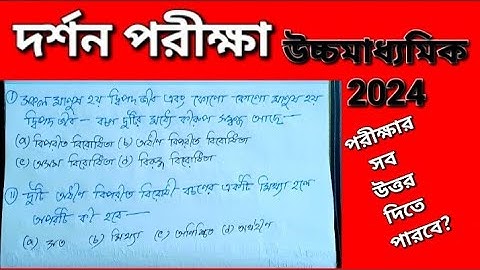 দর্শন পরীক্ষা
উচ্চমাধ্যমিক
2024
① সকল মানুষ হয় দ্বিপদ জীব এবং কোনো কোনো মানুষ হয়
দ্বিপদ জীব – বচন দুটির মধ্যে কীরূপ সম্বন্ধ আছে –
(a) বিপরীত বিরোধিতা (b) অধীন বিপরীত বিরোধিতা
(c) অসম বিরোধিতা (d) বিরুদ্ধ বিরোধিতা
⑪ দুটি অধীন বিপরীত বিরোধী বচনের একটি মিথ্যা হলে
অপরটি কী হবে –
(a) সত্য (b) মিথ্যা (c) অনিশ্চিত (d) অর্থহীন
পরীক্ষার
সব
উত্তর
দিতে
পারবে?